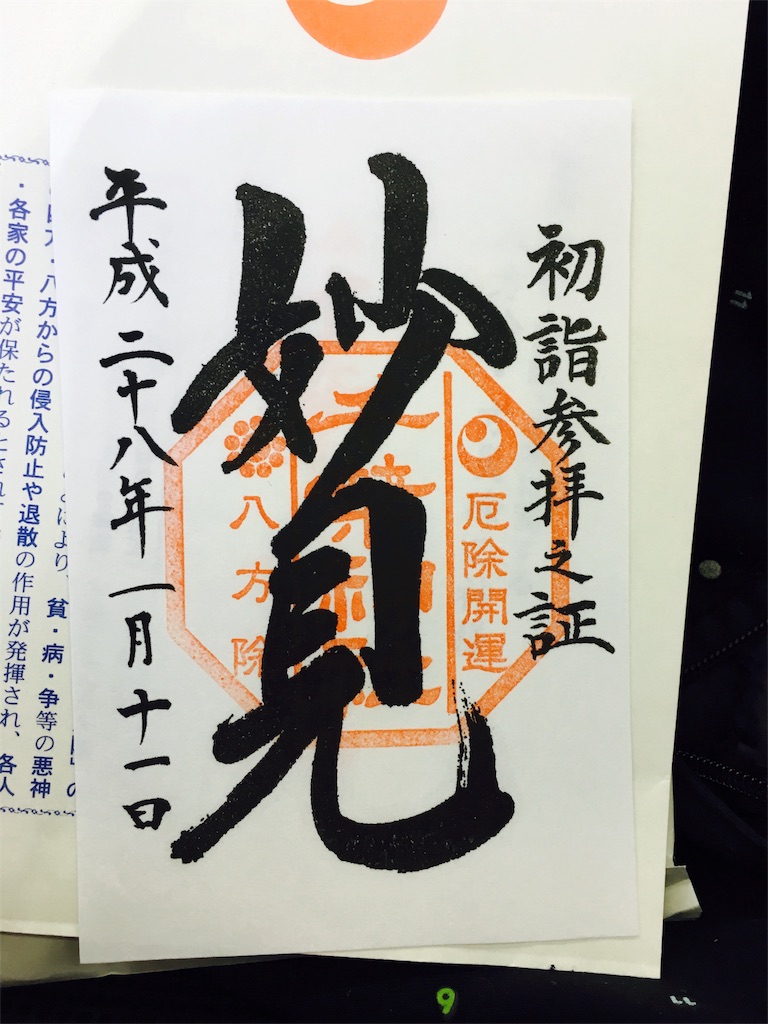 初詣参拝之証
厄除開運
妙見
八方除
平成二十八年一月十一日
」の
により、貧・病・争等の悪神
方・八方からの侵入防止や退散の作用が発揮され、各人
・各家の平安が保たれるとされ
9
11